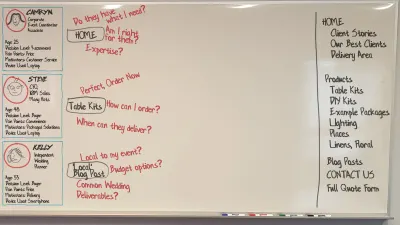 CAMRYN
Corporate
Event Coordinator
Associate
Age 25
Decision Level: Recommend
Pain Points: Price
Motivators: Customer Service
Device Used: Laptop
STEVE
CEO
Many Hats
Age 48
Decision Level: Buyer
Pain Points: Convenience
Motivators: Packaged Solutions
Device Used: Laptop
KELLY
Independent
Wedding
Planner
Age 33
Decision Level: Buyer
Pain Points: Time
Motivators: Delivery
Device Used: Smartphone
Do they have
what I need?
HOME
Am I right
for them?
Expertise?
Perfect, Order Now
Table Kits
How can I order?
When can they deliver?
Local to my event?
Local
Blog Post
Budget options?
Common Wedding
Deliverables?
HOME
Client Stories
Our Best Clients
Delivery Area
Products
Table Kits
DIY Kits
Example Packages
Lighting
Places
Linens, Floral
Blog Posts
CONTACT US
Full Quote Form